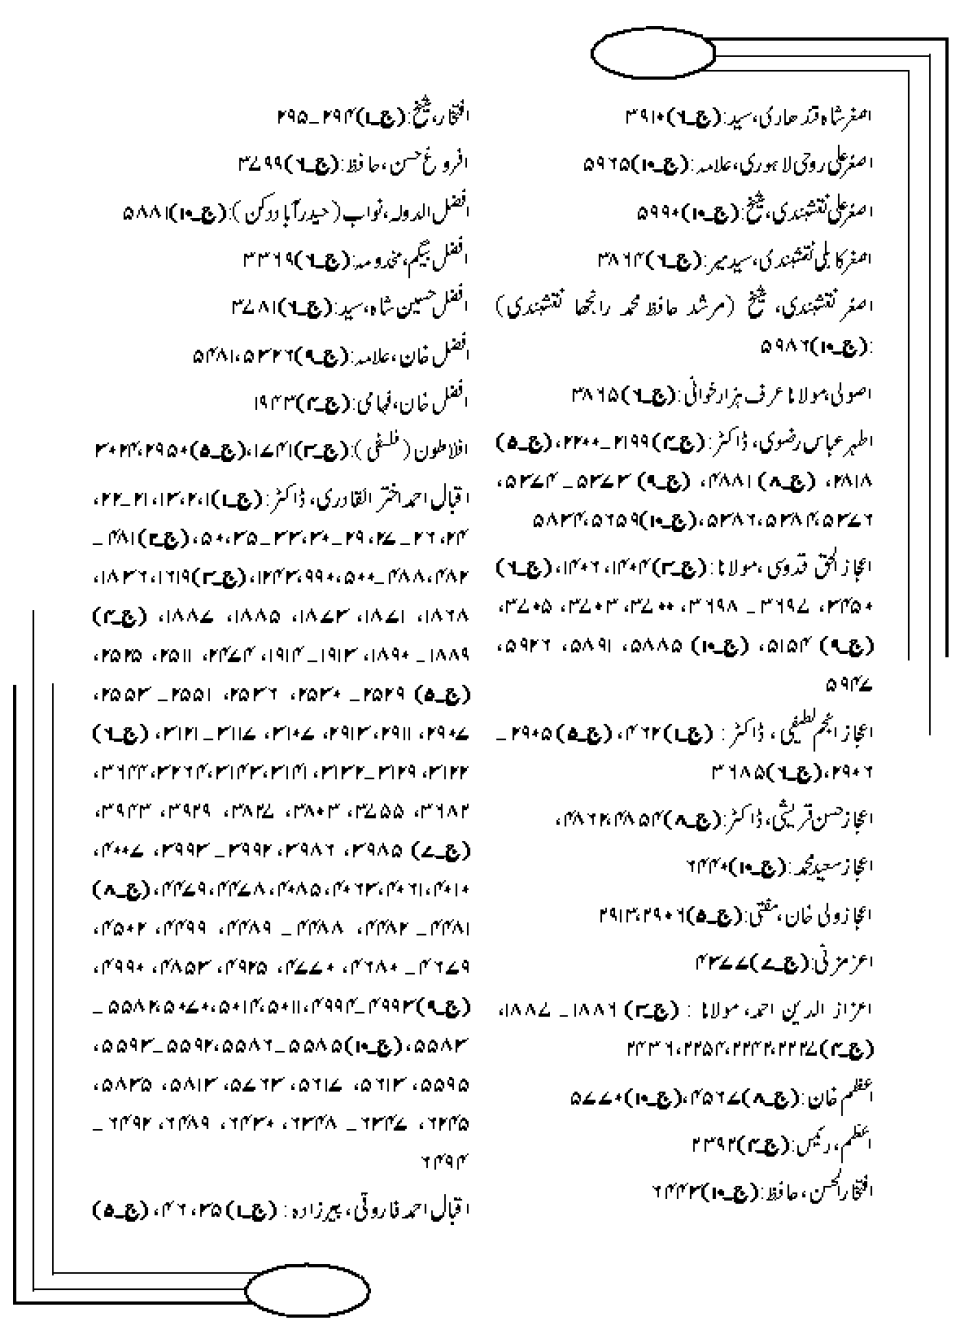 اصغر شاہ قندھاری، سید:(ج۔۶)۳۹۱۰
اصغر علی روحی لاہوری، علامہ:(ج۔۱۰)۵۹۲۵
اصغر علی نقشبندی، شیخ:(ج۔۱۰)۵۹۹۰
اصغر کابلی نقشبندی، سید میر:(ج۔۶)۳۸۶۴
اصغر نقشبندی، شیخ (مرشد حافظ محمد رانجھا نقشبندی)
:(ج۔۱۰)۵۹۸۶
اصولی، مولانا عرف ہزارخوانی:(ج۔۶)۳۸۶۵
اطہر عباس رضوی، ڈاکٹر:(ج۔۴)۲۱۹۹۔۲۲۰۰، (ج۔۵)
۲۸۱۸، (ج۔۸)۴۸۸۱، (ج۔۹) ۵۳۷۳۔ ۵۳۷۴،
۵۳۷۶، ۵۳۸۴، ۵۳۸۶، (ج۔۱۰)۵۶۵۹، ۵۸۳۴
اعجاز الحق قدوسی، مولانا:(ج۔۳)۱۴۰۴، ۱۴۰۶، (ج۔۶)
۳۴۵۰، ۳۶۹۷۔ ۳۶۹۸، ۳۷۰۰، ۳۷۰۳، ۳۷۰۵،
(ج۔۹) ۵۱۵۴، (ج۔۱۰) ۵۸۸۵، ۵۸۹۱، ۵۹۲۶،
۵۹۴۷
اعجاز انجم لطیفی، ڈاکٹر: (ج۔۱)۴۶۲، (ج۔۵)۲۹۰۵۔
۲۹۰۶، (ج۔۶)۳۶۸۵
اعجاز حسن قریشی، ڈاکٹر:(ج۔۸)۴۸۵۴، ۴۸۶۲،
اعجاز سعید محمد:(ج۔۱۰)۶۴۴۰
اعجاز ولی خان، مفتی:(ج۔۵)۲۹۰۶، ۲۹۱۳
اعز مزنی:(ج۔۷)۴۳۷۷
اعزاز الدین احمد، مولانا : (ج۔۳) ۱۸۸۶۔ ۱۸۸۷،
(ج۔۴)۲۲۲۷، ۲۲۴۲، ۲۲۵۴، ۲۴۳۶
اعظم خان:(ج۔۸)۴۵۶۷، (ج۔۱۰)۵۷۷۰
اعظم، رئیس:(ج۔۴)۲۳۹۲
افتخار الحسن، حافظ:(ج۔۱۰)۶۴۴۳
افتخار، شیخ:(ج۔۱)۲۹۴۔۲۹۵
افروغ حسن، حافظ:(ج۔۶)۳۷۹۹
افضل الدولہ، نواب (حیدرآباد دکن):(ج۔۱۰)۵۸۸۱
افضل بیگم، مخدومہ:(ج۔۶)۳۳۶۹
افضل حسین شاہ، سید:(ج۔۶)۳۷۸۱
افضل خان، علامہ:(ج۔۹)۵۳۲۶، ۵۴۸۱
افضل خان، فہامی:(ج۔۴)۱۹۴۳
افلاطون (فلسفی):(ج۔۳)۱۷۴۱، (ج۔۵)۲۹۵۰، ۳۰۲۴
اقبال احمد اختر القادری، ڈاکٹر:(ج۔۱)۱، ۲، ۱۳، ۲۱۔۲۲،
۲۴، ۲۶۔ ۲۷، ۲۹۔۳۰، ۳۳۔۳۵، ۵۰، (ج۔۲)۴۸۱۔
۴۸۲، ۴۸۸۔۵۰۰، ۹۹۰، ۱۲۴۳، (ج۔۳)۱۶۱۹، ۱۸۳۶،
۱۸۶۸، ۱۸۷۱، ۱۸۷۳، ۱۸۸۵، ۱۸۸۷، (ج۔۴)
۱۸۸۹۔ ۱۸۹۰، ۱۹۱۳۔۱۹۱۴، ۲۴۷۴، ۲۵۱۱، ۲۵۲۵،
(ج۔۵) ۲۵۲۹۔ ۲۵۳۰، ۲۵۳۶، ۲۵۴۰، ۲۵۵۱۔ ۲۵۵۳،
۲۹۰۷، ۲۹۱۱، ۲۹۱۳، ۳۱۰۷، ۳۱۱۷۔ ۳۱۲۱، (ج۔۶)
۳۱۲۲، ۳۱۲۹۔۳۱۳۲، ۳۱۴۱، ۳۱۴۳، ۳۲۶۴، ۳۶۴۴،
۳۶۸۲، ۳۷۵۵، ۳۸۰۳، ۳۸۲۷، ۳۹۲۹، ۳۹۴۳،
(ج۔۷) ۳۹۸۵، ۳۹۸۶، ۳۹۹۲۔ ۳۹۹۳، ۴۰۰۷،
۴۰۱۰، ۴۰۶۱، ۴۰۶۳، ۴۰۸۵، ۴۴۷۸، ۴۴۷۹، (ج۔۸)
۴۴۸۱۔ ۴۴۸۲، ۴۴۸۸۔ ۴۴۸۹، ۴۴۹۹، ۴۵۰۲،
۴۶۷۹۔ ۴۶۸۰، ۴۷۷۰، ۴۹۲۵، ۴۸۵۳، ۴۹۹۰،
(ج۔۹)۴۹۹۳۔۴۹۹۴، ۵۰۱۱، ۵۰۱۴، ۵۰۷۰، ۵۵۸۲۔
۵۵۸۳، (ج۔۱۰)۵۵۸۵۔۵۵۸۶، ۵۵۹۲۔۵۵۹۳،
۵۵۹۵، ۵۶۱۳، ۵۶۱۷، ۵۷۶۳، ۵۸۱۳، ۵۸۳۵،
۶۲۴۵، ۶۳۴۷۔ ۶۳۴۸، ۶۴۳۰، ۶۴۸۹، ۶۴۹۲۔
۶۴۹۴
اقبال احمد فاروقی، پیرزادہ: (ج۔۱)۳۵، ۴۶، (ج۔۵)